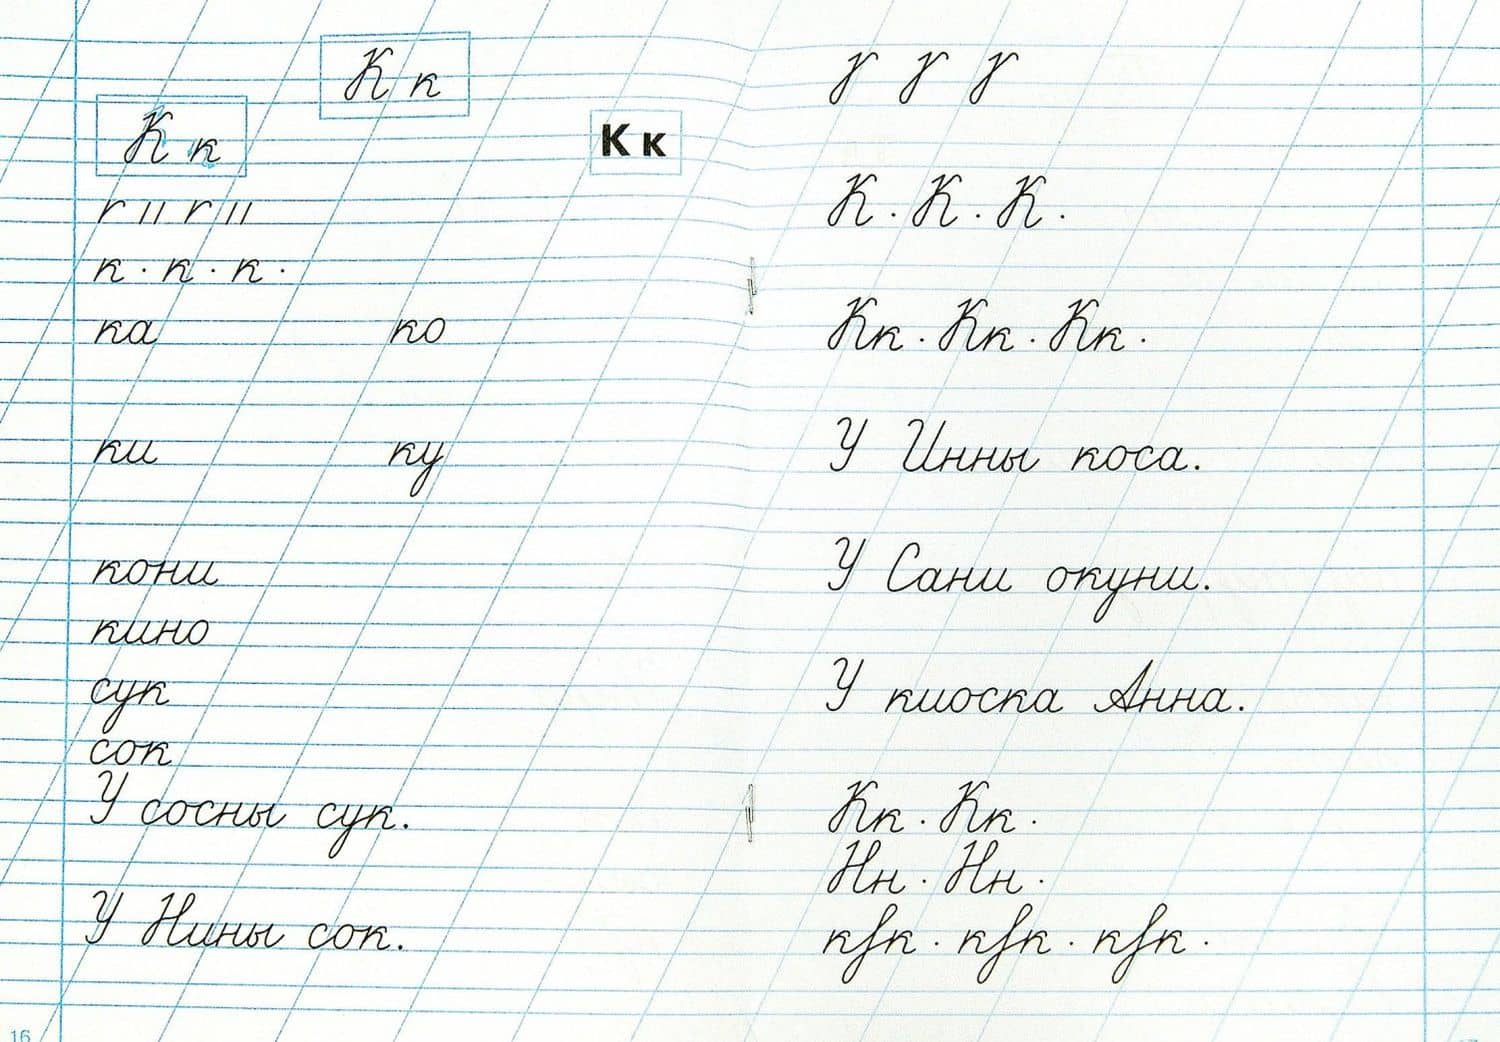 К к
К к
К к
к · к · к ·
ка ко
ки ку
кони
кино
сук
сок
У сосны сук.
У Нины сок.
16
К · К · К ·
Кк · Кк · Кк ·
У Инны коса.
У Сани окуни.
У киоска Анна.
Кк · Кк ·
Нн · Нн ·